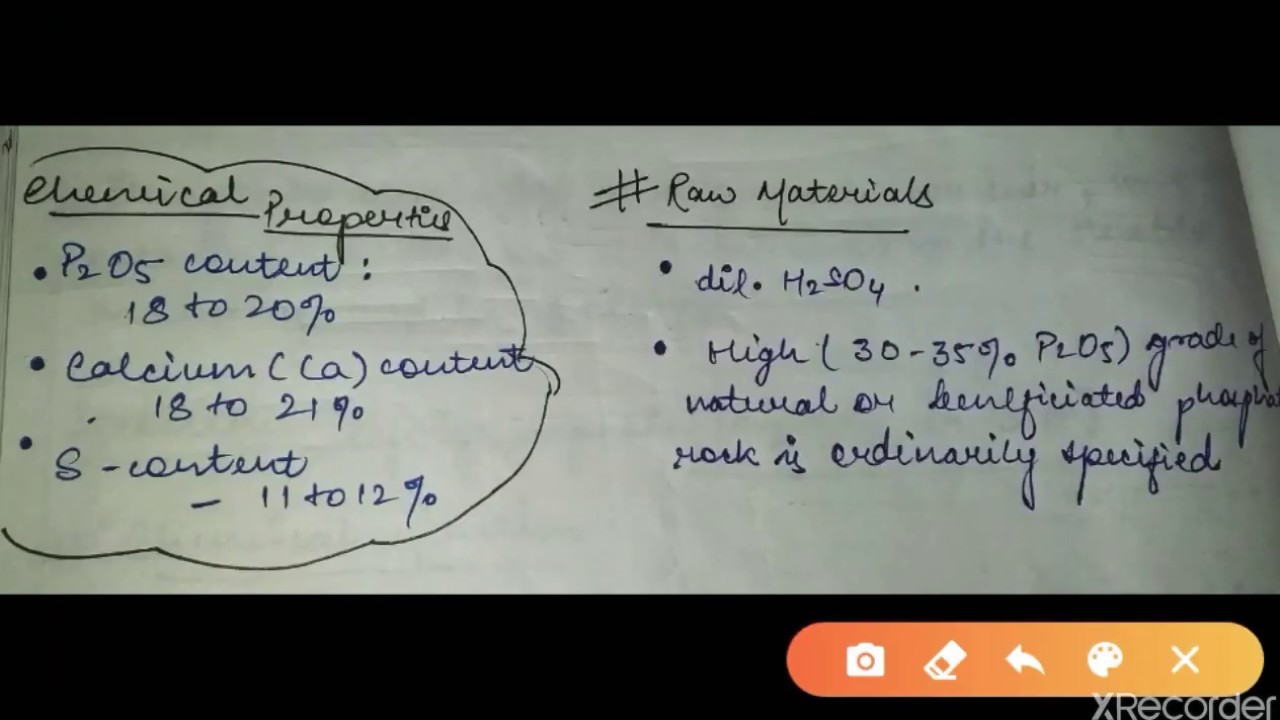 Chemical Properties
• P2O5 content :
18 to 20%
• Calcium (Ca) content
18 to 21%
• S-content
- 11 to 12%
# Raw Materials
• dil. H2SO4 .
• High (30-35% P2O5) grade of
natural or beneficiated phosphat
rock is ordinarily specified
XRecorder